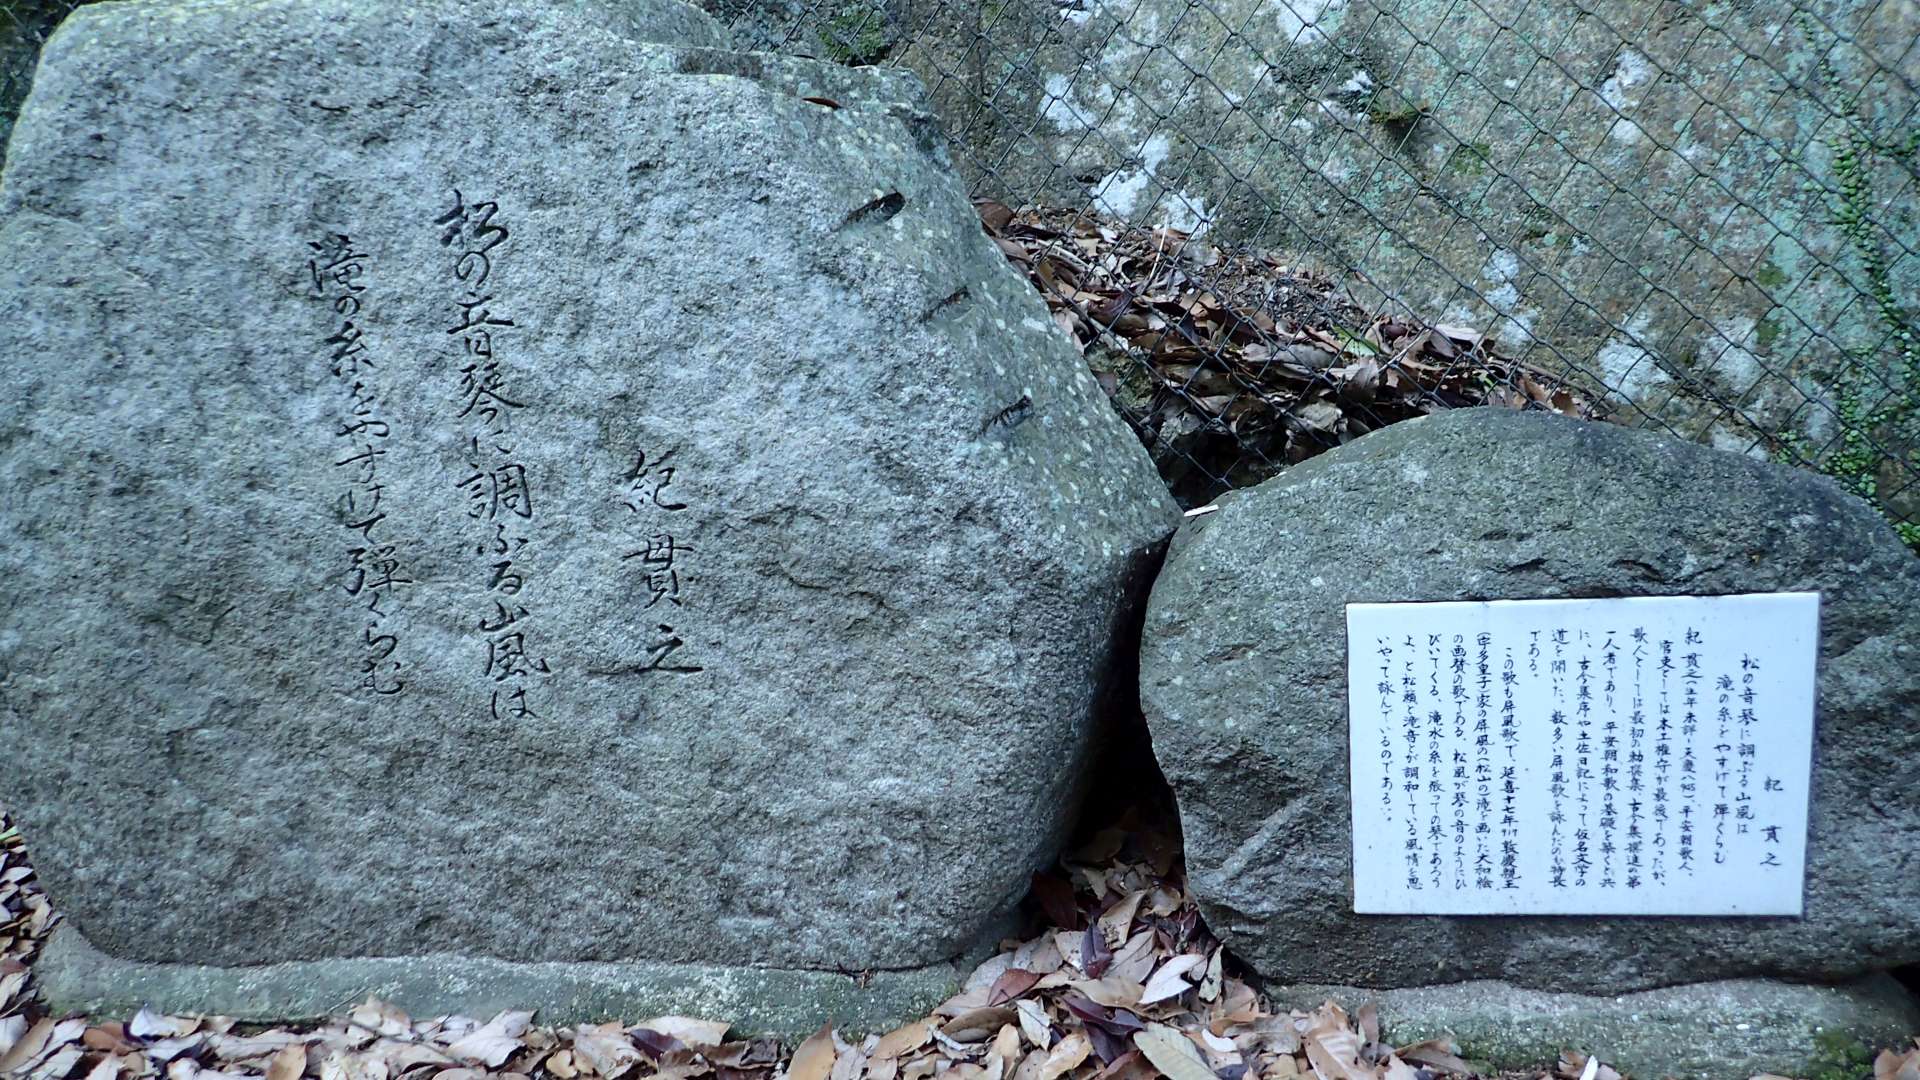 紀貫之
松の音琴に調ふる山風は
滝の糸をやすげて弾くらむ
紀 貫之
松の音琴に調ぶる山風は
滝の糸をやすげて弾くらむ
紀 貫之(生年未詳-天慶八945)、平安朝歌人、
官吏としては木工権守が最後であったが、
歌人としては最初の勅撰集、古今集撰進の第
一人者であり、平安朝和歌の基礎を築くと共
に、古今集序や土佐日記によって仮名文学の
道を開いた。数多い屏風歌を詠んだのも特長
である。
この歌も屏風歌で、延喜十七年917敦慶親王
(宇多皇子)家の屏風の(松山の)滝を画いた大和絵
の画賛の歌である。松風が琴の音のようにひ
びいてくる、滝水の糸を張っての琴であろう
よ、と松籟と滝音とが調和している風情を思
いやって詠んでいるのである。